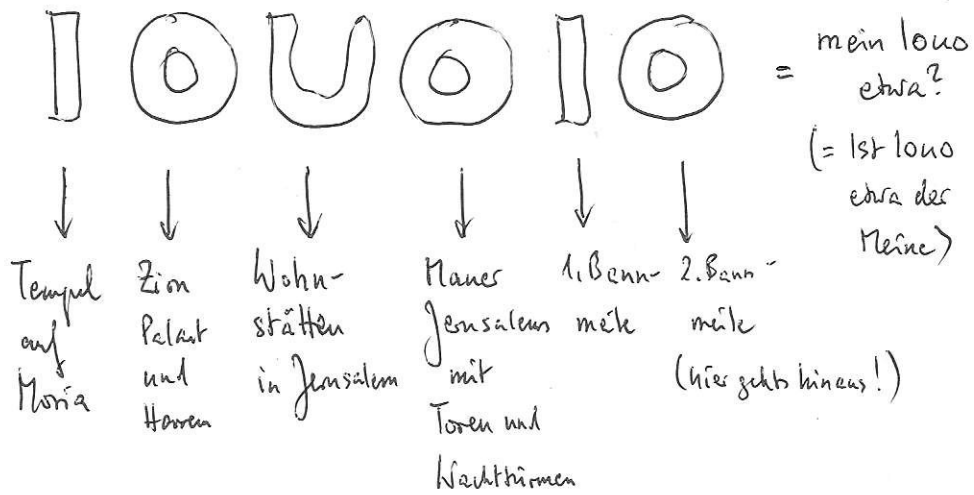 IOUOIO
= mein Iouo
etwa?
(= Ist Iouo
etwa der
Meine)
Tempel
auf
Moria
Zion
Palast
und
Harem
Wohn-
stätten
in Jerusalem
Mauer
Jerusalems
mit
Toren und
Wachttürmen
1. Bann-
meile
2. Bann-
meile
(hier gehts hinaus!)